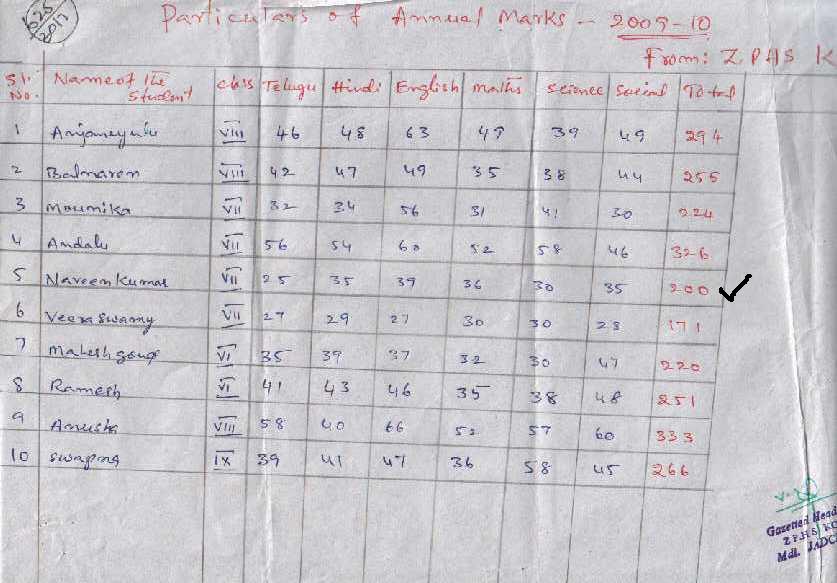 625
2017
Particulars of Annual Marks - 2009-10
From: ZPHS K
Sl. No. Name of the Student class Telugu Hindi English maths science Social Total
1 Anjaneyulu VIII 46 48 63 49 39 49 294
2 Balnaren VIII 42 47 49 35 38 44 255
3 Mounika VII 32 34 56 31 41 30 224
4 Andalu VII 56 54 60 52 58 46 326
5 Naveen Kumar VII 25 35 39 36 30 35 200 ✓
6 Veera swamy VII 27 29 27 30 30 28 171
7 Mahesh goud VI 35 39 37 32 30 47 220
8 Ramesh VI 41 43 46 35 38 48 251
9 Anusha VIII 58 40 66 52 57 60 333
10 swapna IX 39 41 47 36 58 45 266
Gazetted Head
Z.P.H.S. KO
Mdl. JADC